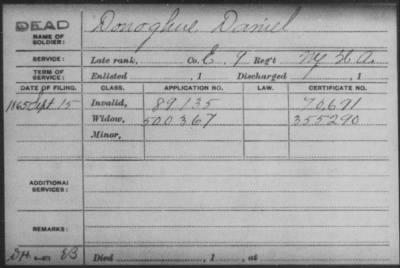 DEAD
NAME OF SOLDIER: Donoghue Daniel
SERVICE: Late rank, Co. E. 9 Reg't NY H.A.
TERM OF SERVICE: Enlisted , 1 Discharged , 1
DATE OF FILING. CLASS. APPLICATION NO. LAW. CERTIFICATE NO.
1865 Sept. 15 Invalid, 89135 70,671
Widow, 500367 355290
Minor,
ADDITIONAL SERVICES:
REMARKS:
Died , 1 , at